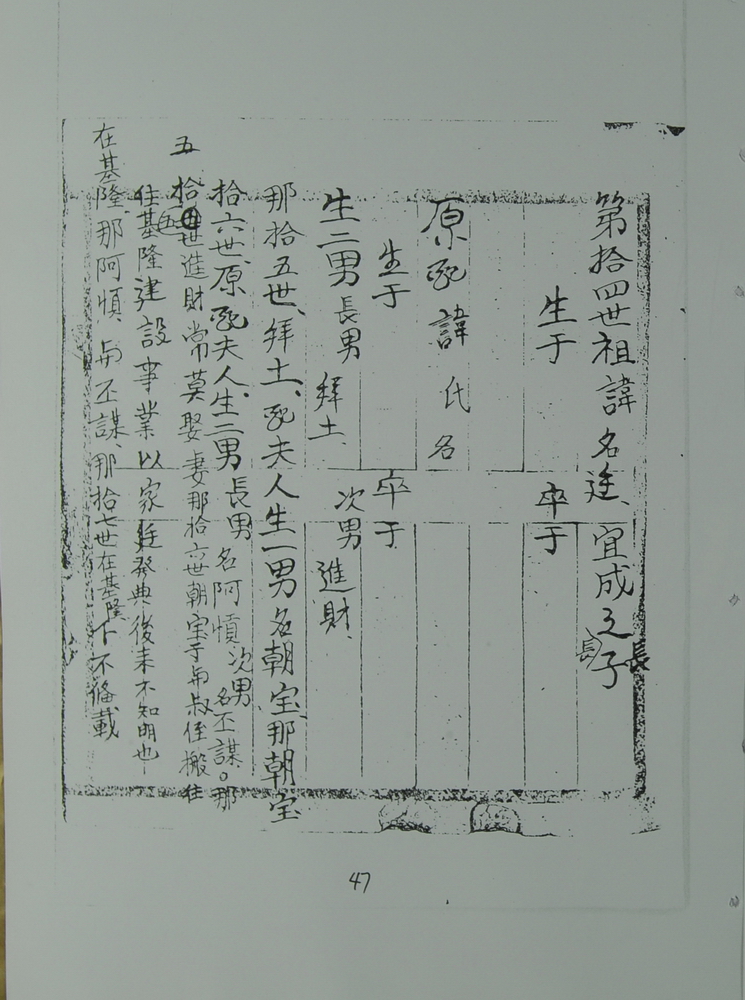 第拾四世祖諱名送、宜成之長子
長
生于 卒于
原配諱氏名
生于 卒于
生二男長男拜土、次男進財、
那拾五世、拜土、配夫人生一男名朝宝、那朝宝
拾六世、原配夫人生二男長男名阿慎次男名丕謀。那
五
拾五世進財常莫娶妻那拾六世朝宝于與叔侄搬住
住基隆建設事業以家庭發典後未不知明也
在基隆、那阿慎與丕謀、那拾七世在基隆下不俻載
47